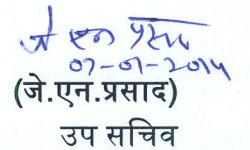 जे एन प्रसाद
07-01-2014
(जे.एन.प्रसाद)
उप सचिव